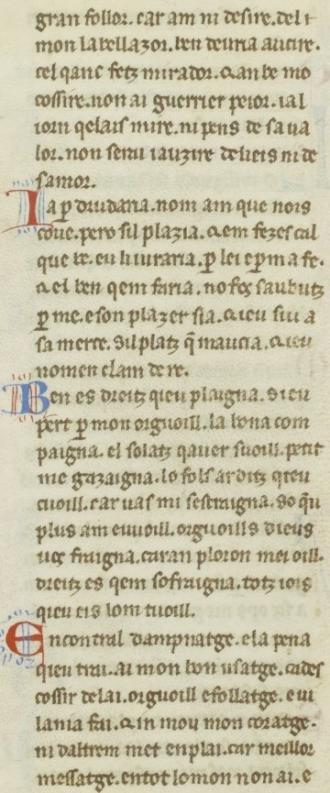 gran follor. car am ni desire. del
mon la bellazor. ben deuria aucire.
cel qanc fetz mirador. & an be mo
cossire. non ai guerrier peior. ial
iorn qelais mire. ni pens de sa ua
lor. non serai iauzire de lieis ni de
samor.
Ia p drudaria. nom am que nois
coue. pero sil plazia. & em fezes cal
que be. eu li iuraria. p lei e p ma fe.
& el ben qem faria. no fos saubutz
p me. e son plazer sia. & ieu sui a
sa merce. sil platz q̄ maucia. & ieu
nomen clam de re.
Ben es dreitz qieu plaigna. sieu
pert p mon orguoill. la bona com
paigna. el solatz qauer suoill. petit
me gazaigna. lo fols arditz qieu
cuoill. car uas mi sestraigna. so q̄u
plus am e uuoill. orguoills dieus
uos fraigna. caran ploron mei oill.
dreitz es qem sofraigna. totz iois
qieu eis lom tuoill.
Encontral dampnatge. e la pena
qieu trai. ai mon bon usatge. cades
cossir de lai. orguoill e follatge. e ui
lania fai. & in mou mon coratge.
ni daltrem met en plai. car meillor
messatge. en tot lo mon non ai. e